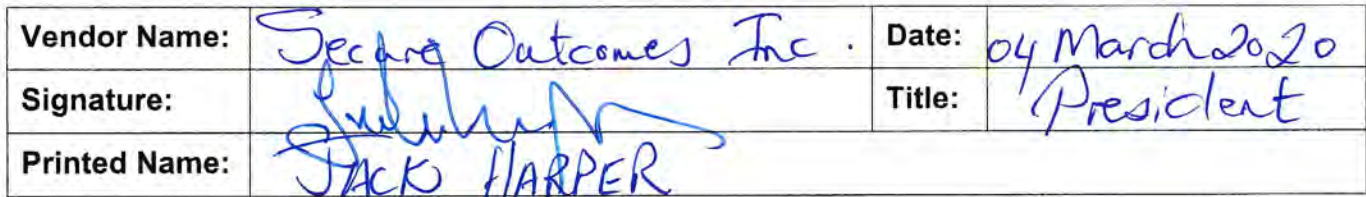 Vendor Name: Secure Outcomes Inc. Date: 04 March 2020
Signature: Title: President
Printed Name: JACK HARPER